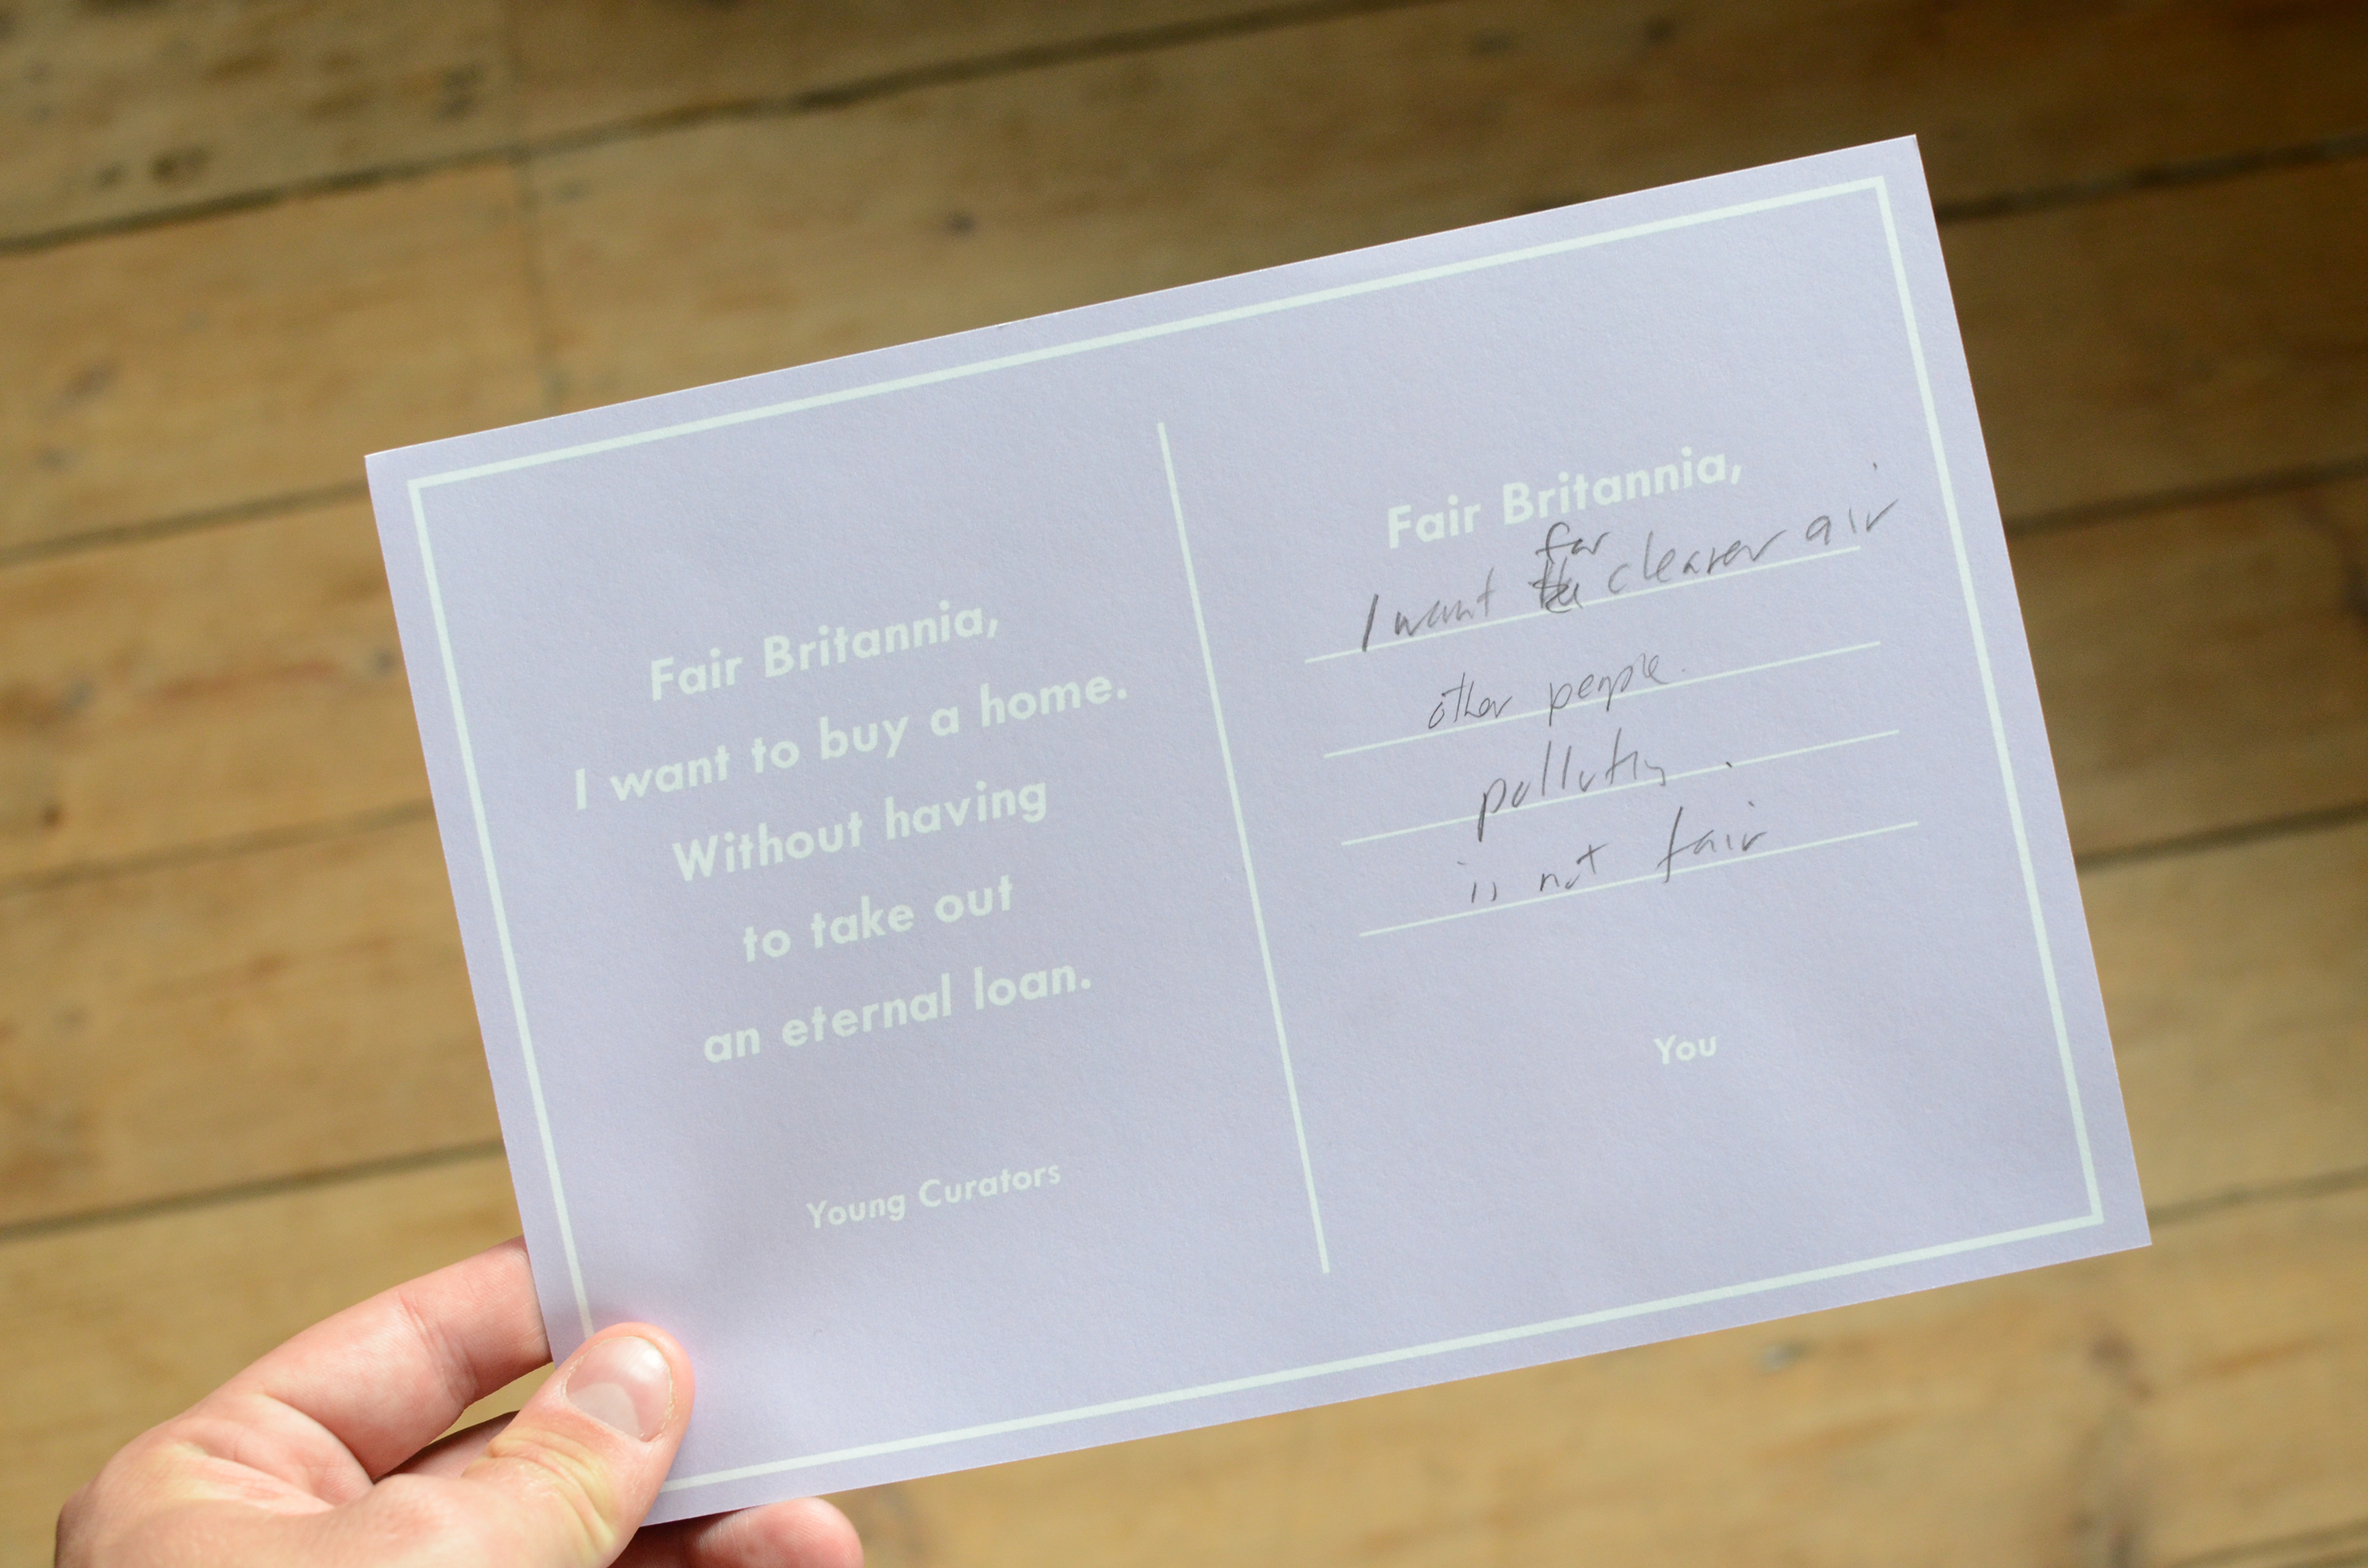 Fair Britannia,
I want to buy a home.
Without having
to take out
an eternal loan.
Young Curators
Fair Britannia,
far
I want cleaner air
other people.
polluting.
is not fair
You